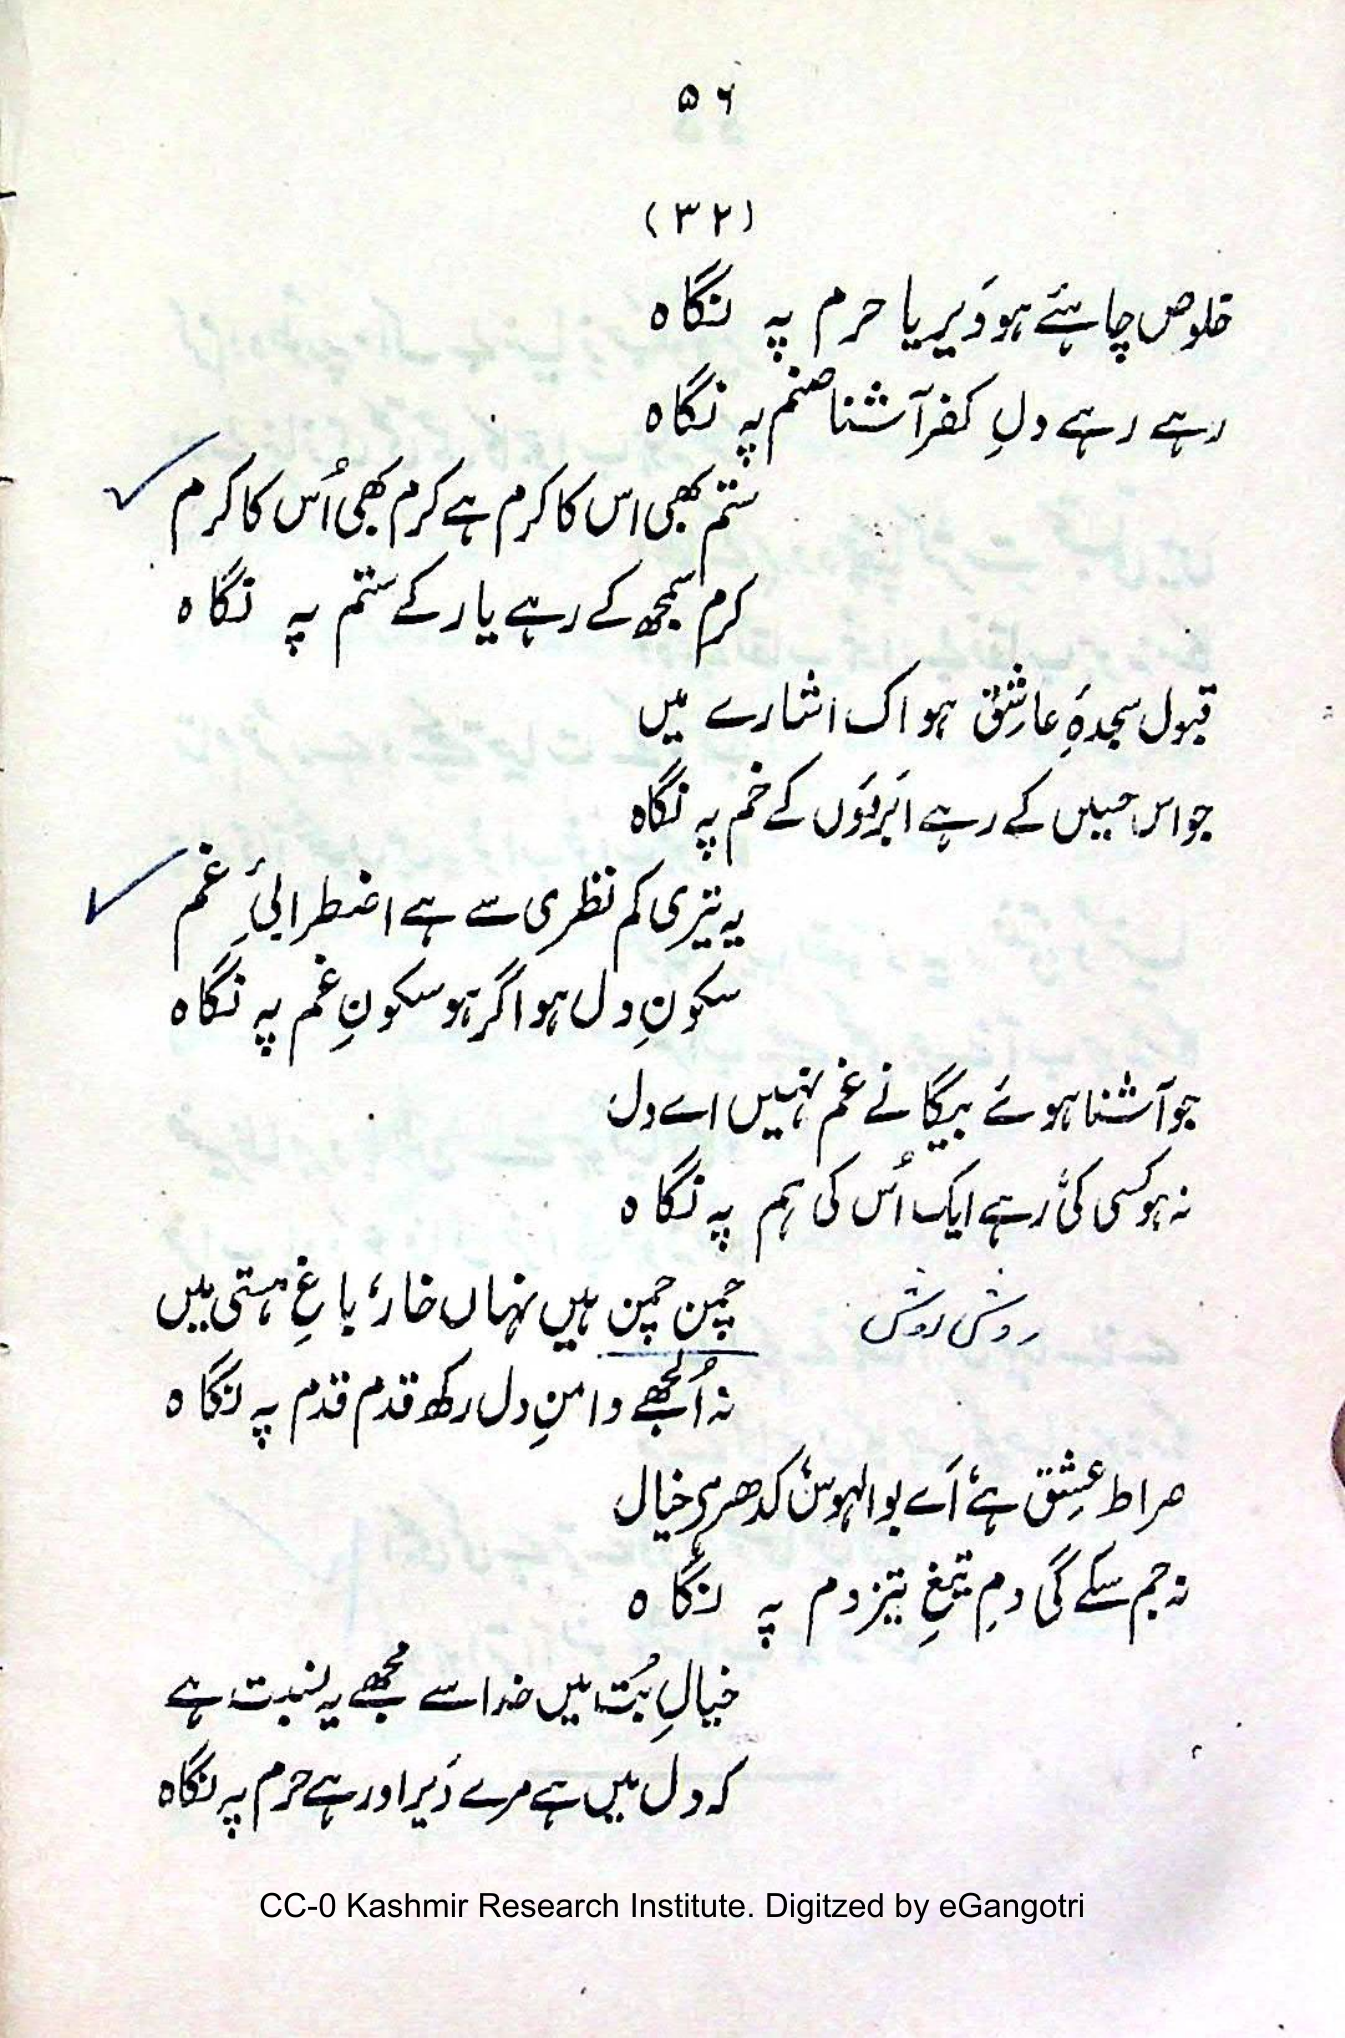 ۵۶
(۳۲)
خلوص چاہئے ہو دَیر یا حرم پہ نگاہ
رہے رہے دلِ کفر آشنا صنم پہ نگاہ
ستم بھی اس کا کرم ہے کرم بھی اُس کا کرم
کرم سمجھ کے رہے یار کے ستم پہ نگاہ
قبول سجدۂِ عاشق ہو اک اشارے میں
جو اس حسیں کے رہے ابَرؤں کے خم پہ نگاہ
یہ تیری کم نظری سے ہے اضطرابیٔ غم
سکونِ دل ہو اگر ہو سکونِ غم پہ نگاہ
جو آشنا ہوئے بیگانے غم نہیں اے دل
نہ ہو کسی کی، رہے ایک اُس کی ہم پہ نگاہ
چمن چمن ہیں نہاں خار، باغِ ہستی میں
روش روش
نہ اُلجھے دامنِ دل رکھ قدم قدم پہ نگاہ
صراط عشق ہے، اَے بوالہوس، کدھر ہے خیال
نہ جم سکے گی دمِ تیغِ تیز دم پہ نگاہ
خیالِ بُت میں خدا سے مجھے یہ نسبت ہے
کہ دل میں ہے مرے دَیر اور ہے حرم پہ نگاہ
CC-0 Kashmir Research Institute. Digitzed by eGangotri